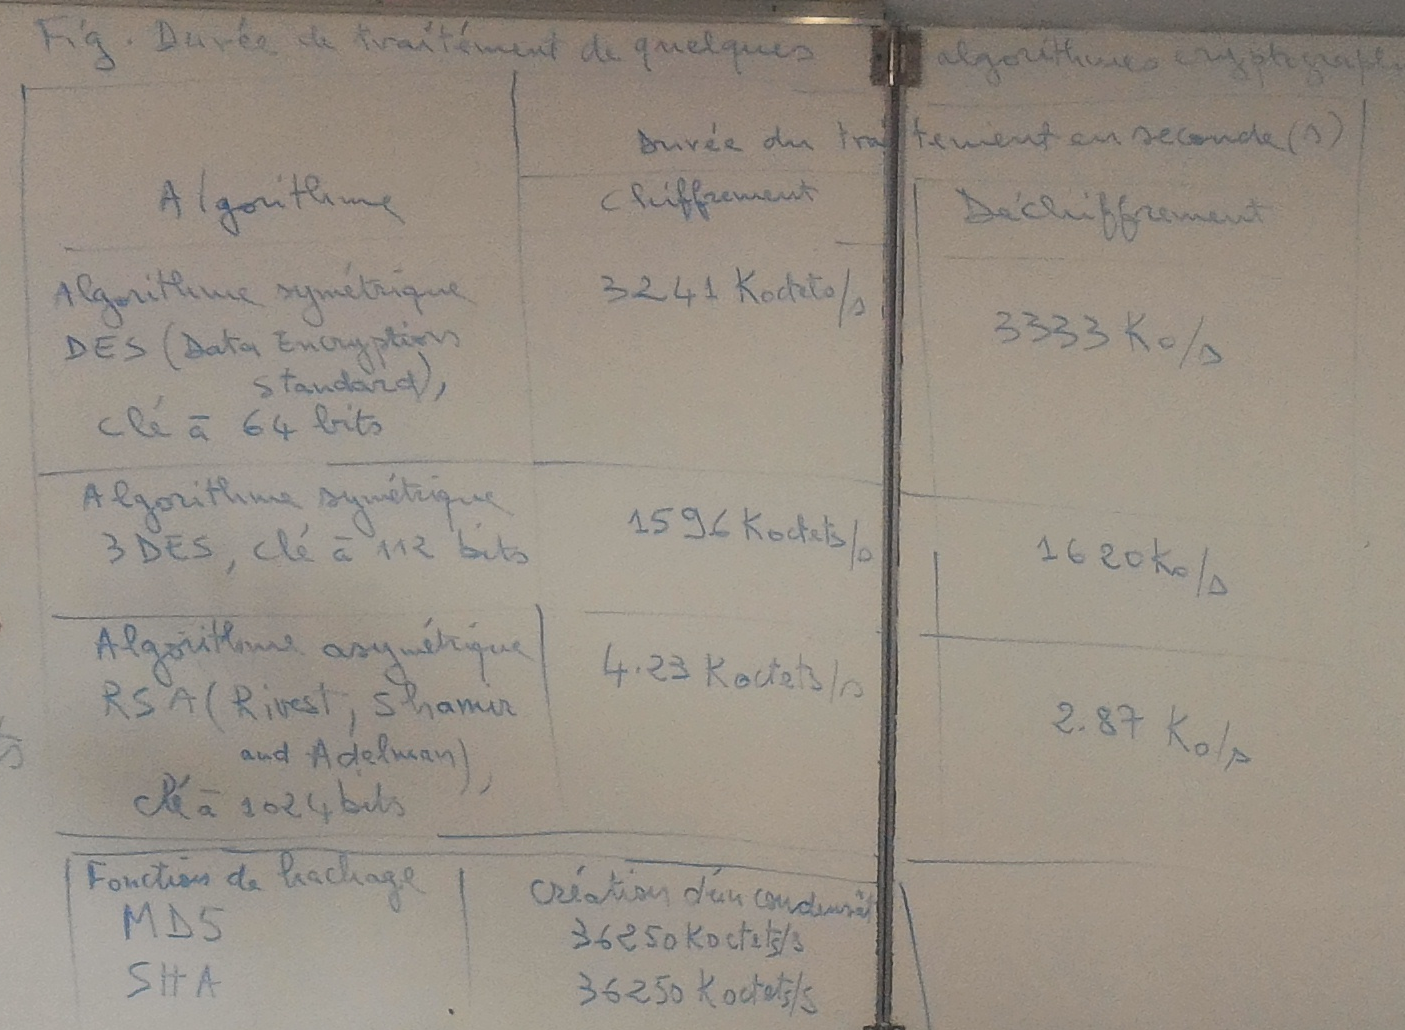 Fig. Durée de traitément de quelques algorithmes cryptograph
Durée du traitement en seconde (s)
Algorithme
chiffrement
Déchiffrement
Algorithme symétrique
DES (Data Encryption
Standard),
clé à 64 bits
3241 Koctets/s
3333 Ko/s
Algorithme symétrique
3DES, clé à 112 bits
1596 Koctets/s
1620 Ko/s
Algorithme asymétrique
RSA (Rivest, Shamir
and Adelman),
clé à 1024 bits
4.23 Koctets/s
2.87 Ko/s
Fonction de hachage
MD5
SHA
Création d'un condensât
36250 Koctets/s
36250 Koctets/s